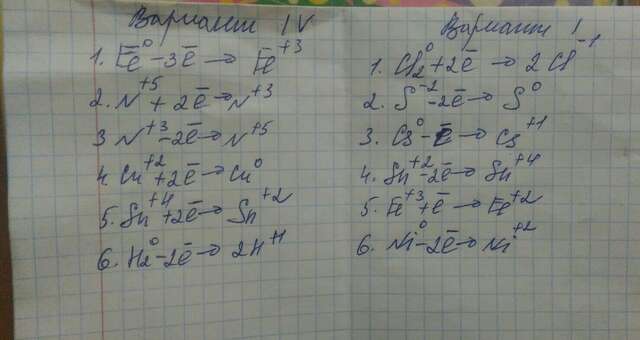 Вариант IV
1. Fe⁰ -3ē → Fe⁺³
2. N⁺⁵ + 2ē → N⁺³
3 N⁺³ -2ē → N⁺⁵
4. Cu⁺² +2ē → Cu⁰
5. Sn⁺⁴ +2ē → Sn⁺²
6. H₂⁰ -2ē → 2H⁺¹
Вариант I
1. Cl₂⁰ +2ē → 2Cl⁻¹
2. S⁻² -2ē → S⁰
3. Cs⁰ -ē → Cs⁺¹
4. Sn⁺² -2ē → Sn⁺⁴
5. Fe⁺³ +ē → Fe⁺²
6. Ni⁰ -2ē → Ni⁺²